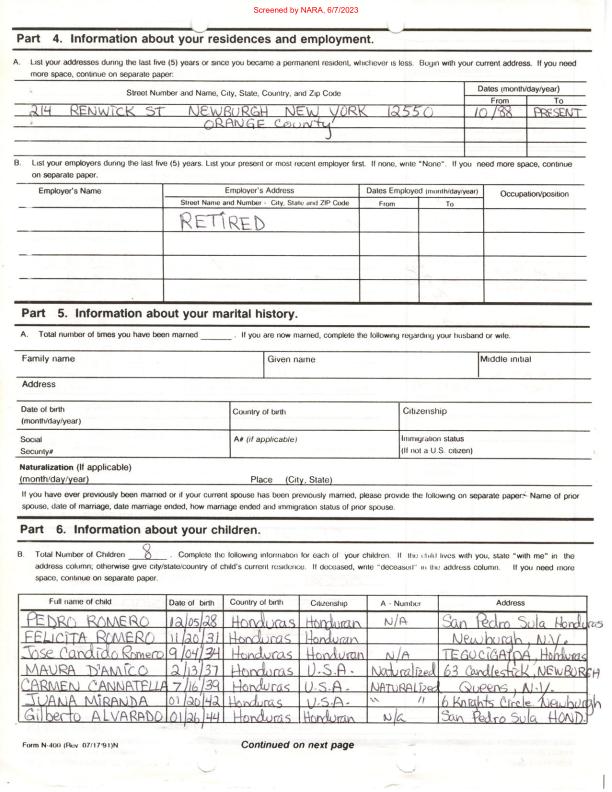 Screened by NARA, 6/7/2023
Part 4. Information about your residences and employment.
A. List your addresses during the last five (5) years or since you became a permanent resident, whichever is less. Begin with your current address. If you need
more space, continue on separate paper:
Street Number and Name, City, State, Country, and Zip Code
Dates (month/day/year)
From To
214 RENWICK ST NEWBURGH NEW YORK 12550 10/88 PRESENT
ORANGE County
B. List your employers during the last five (5) years. List your present or most recent employer first. If none, write "None". If you need more space, continue
on separate paper.
Employer's Name Employer's Address Dates Employed (month/day/year) Occupation/position
Street Name and Number - City, State and ZIP Code From To
RETIRED
Part 5. Information about your marital history.
A. Total number of times you have been married ______ . If you are now married, complete the following regarding your husband or wife.
Family name Given name Middle initial
Address
Date of birth
(month/day/year)
Country of birth Citizenship
Social
Security#
A# (if applicable) Immigration status
(If not a U.S. citizen)
Naturalization (If applicable)
(month/day/year) Place (City, State)
If you have ever previously been married or if your current spouse has been previously married, please provide the following on separate paper: Name of prior
spouse, date of marriage, date marriage ended, how marriage ended and immigration status of prior spouse.
Part 6. Information about your children.
B. Total Number of Children 8 . Complete the following information for each of your children. If the child lives with you, state "with me" in the
address column; otherwise give city/state/country of child's current residence. If deceased, write "deceased" in the address column. If you need more
space, continue on separate paper.
Full name of child Date of birth Country of birth Citizenship A - Number Address
PEDRO ROMERO 12/05/28 Honduras Honduran N/A San Pedro Sula Honduras
FELICITA ROMERO 11/20/31 Honduras Honduran Newburgh, N.Y.
Jose Candido Romero 9/04/34 Honduras Honduran N/A TEGUCIGALPA, Honduras
MAURA D'AMICO 2/12/37 Honduras U.S.A. Naturalized 63 Candlestick, NEWBURGH
CARMEN CANNATELLA 7/16/39 Honduras U.S.A. NATURALIZED Queens, N.Y.
JUANA MIRANDA 01/20/42 Honduras U.S.A. " " 6 Knights Circle Newburgh
Gilberto ALVARADO 01/26/44 Honduras Honduran N/a San Pedro Sula HOND.
Form N-400 (Rev 07/17/91)N Continued on next page